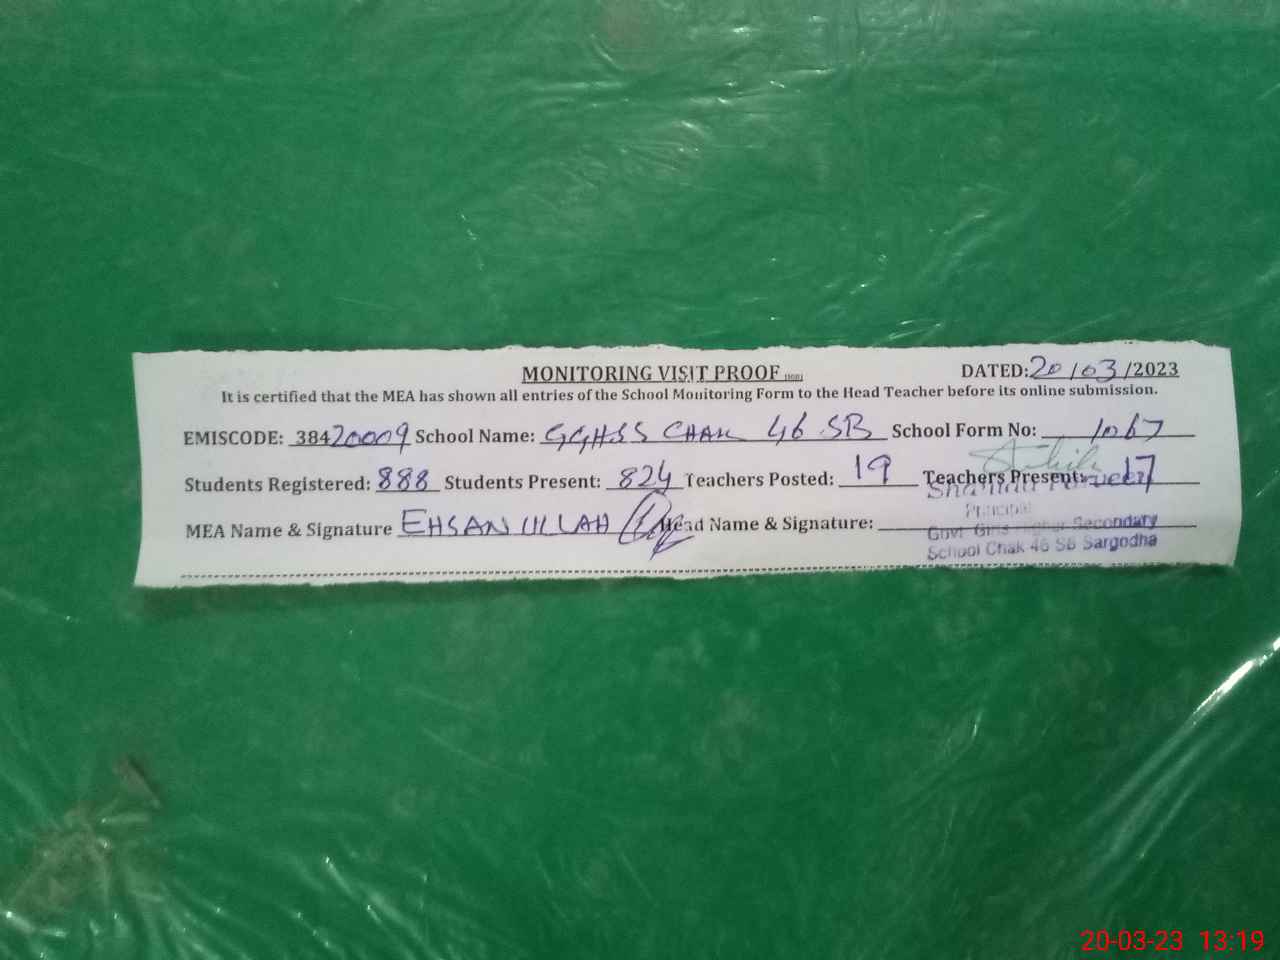 MONITORING VISIT PROOF
DATED: 20/03/2023
It is certified that the MEA has shown all entries of the School Monitoring Form to the Head Teacher before its online submission.
EMISCODE: 38420009 School Name: GGHSS CHAK 46 SB School Form No: 1067
Students Registered: 888 Students Present: 824 Teachers Posted: 19 Teachers Present: 17
MEA Name & Signature EHSAN ULLAH Head Name & Signature:
Principal
Govt Girls Higher Secondary
School Chak 46 SB Sargodha
20-03-23 13:19